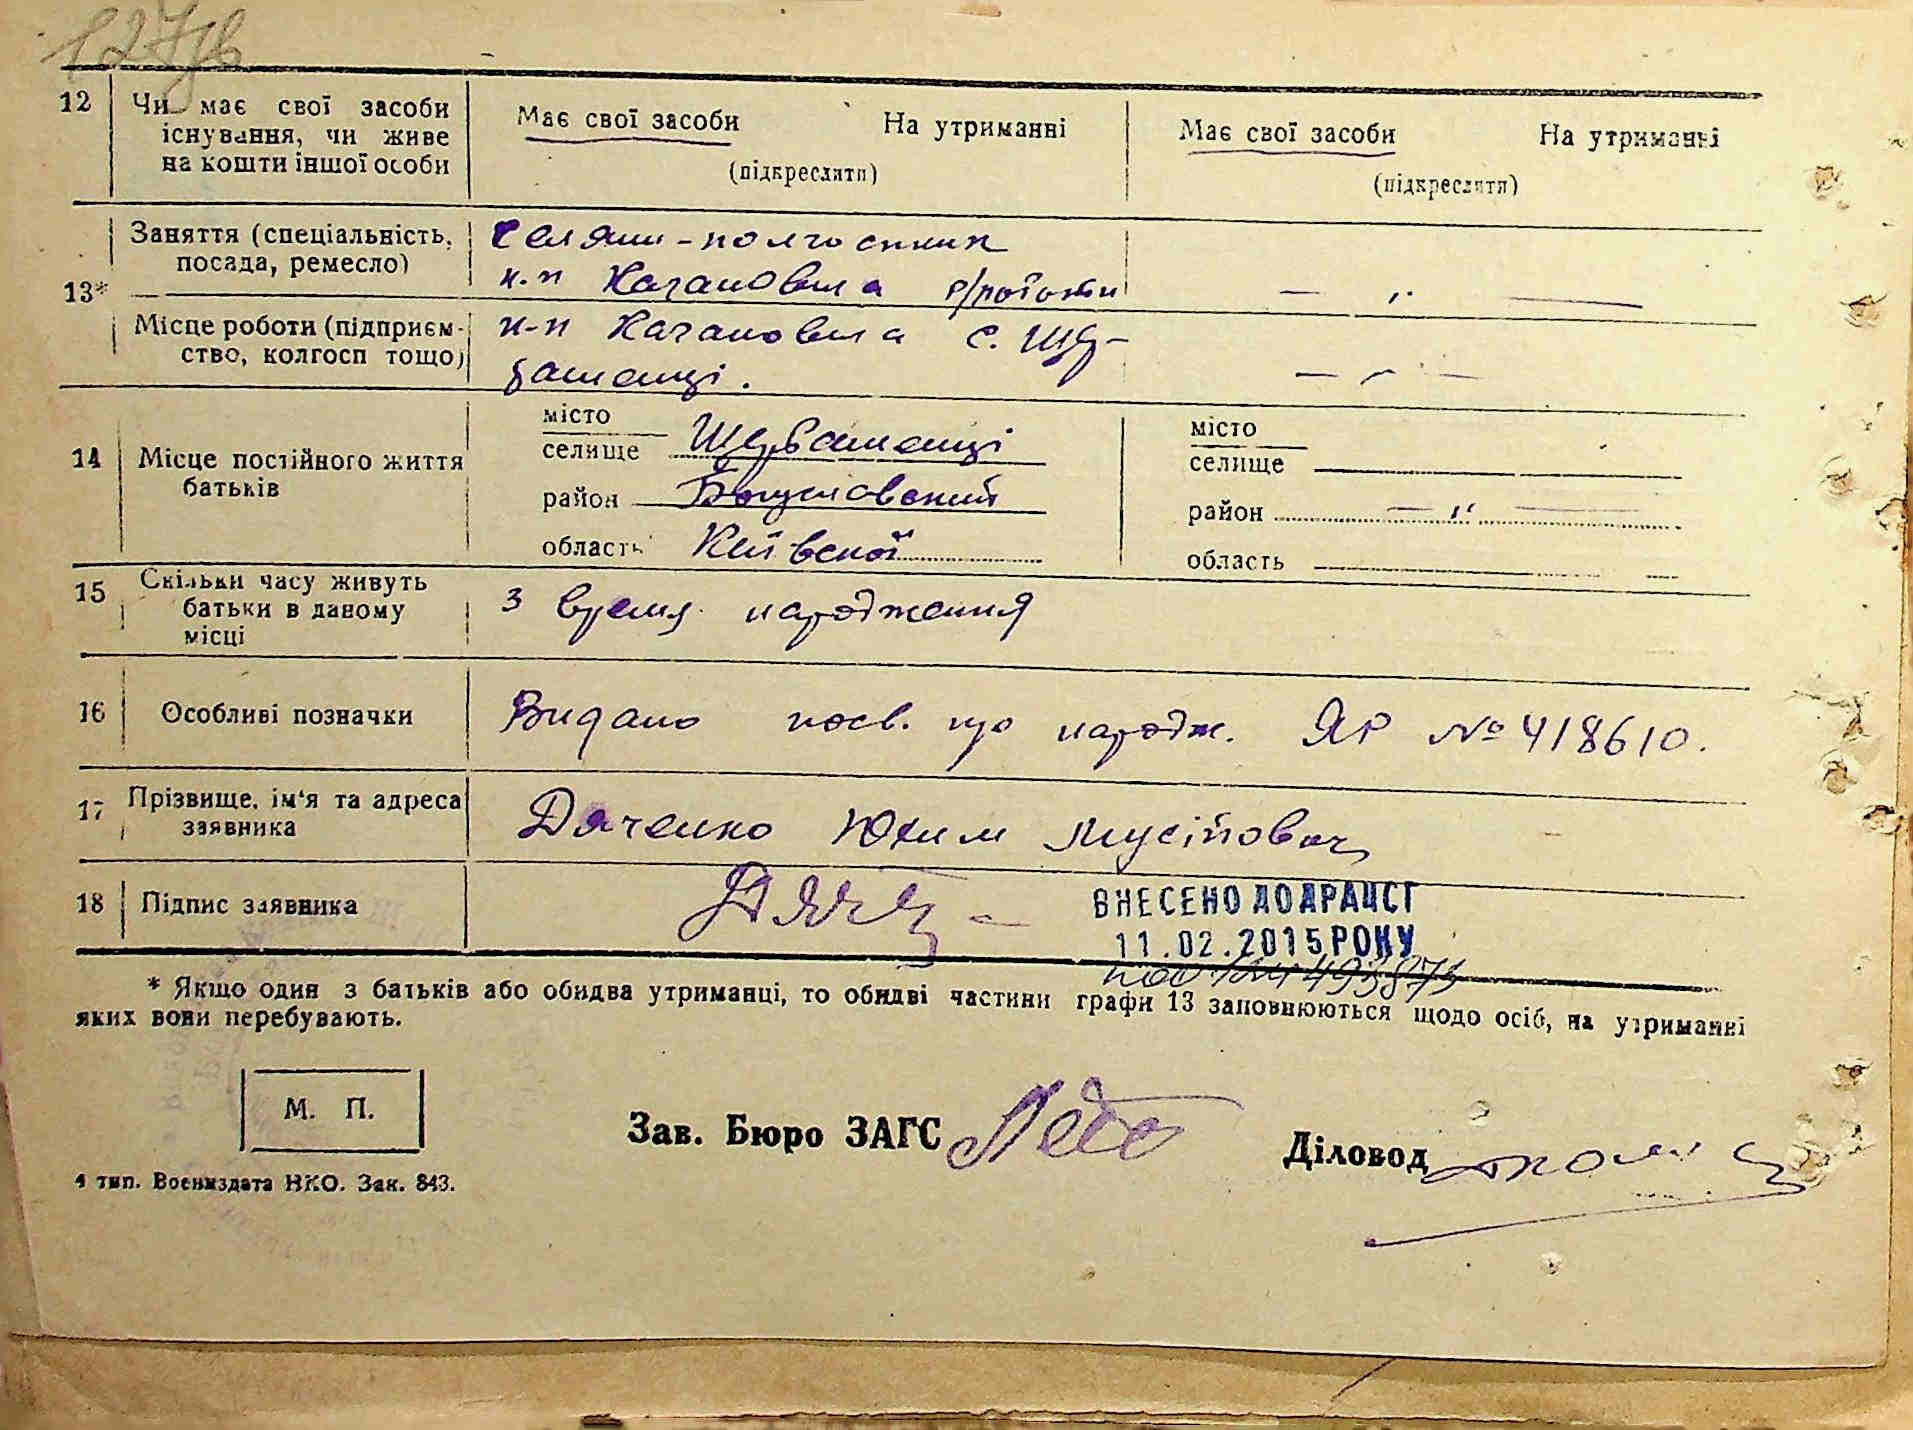 127зв
12 Чи має свої засоби існування, чи живе на кошти іншої особи
Має свої засоби На утриманні
(підкреслити)
Має свої засоби На утриманні
(підкреслити)
13*
Заняття (спеціальність, посада, ремесло)
к-п Кагановича р/роботи
— „ —
Місце роботи (підприємство, колгосп тощо)
к-п Кагановича с. Щер-
башенці.
— „ —
14 Місце постійного життя батьків
місто
селище Щербашенці
район Богуславский
область Київської
місто
селище
район — „ —
область
15 Скільки часу живуть батьки в даному місці
з время народження
16 Особливі позначки
Видано посв. про народж. ЯР № 418610.
17 Прізвище, ім'я та адреса заявника
Дяченко Юхим Мусійович
18 Підпис заявника
ВНЕСЕНО ДО ДРАЦСГ
11.02.2015 РОКУ
* Якщо один з батьків або обидва утриманці, то обидві частини графи 13 заповнюються щодо осіб, на утриманні
яких вони перебувають.
М. П.
Зав. Бюро ЗАГС
Діловод
4 тип. Воениздата НКО. Зак. 843.